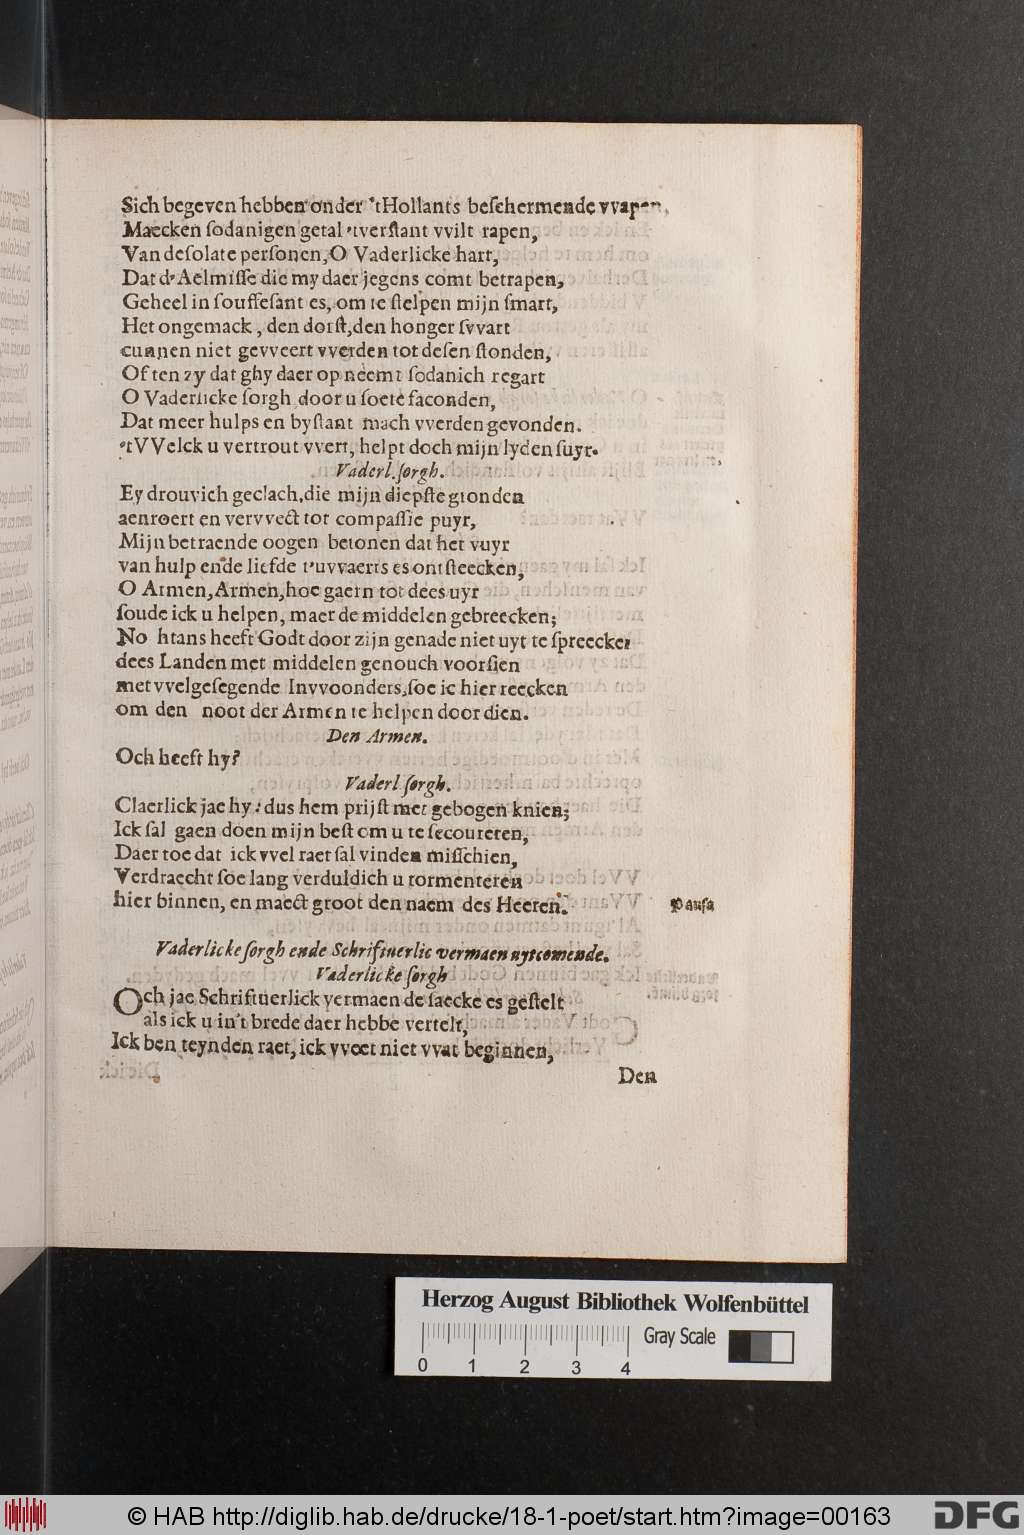 Sich begeven hebben onder 'tHollants beſchermende vvapen,
Maecken ſodanigen getal 'tverſtant vvilt rapen,
Van deſolate perſonen, O Vaderlicke hart,
Dat d'Aelmiſſe die my daer jegens comt betrapen,
Geheel in ſouffeſant es, om te ſtelpen mijn ſmart,
Het ongemack, den dorſt, den honger ſvvart
cunnen niet gevveert vverden tot deſen ſtonden,
Of ten zy dat ghy daer op neemt ſodanich regart
O Vaderlicke ſorgh door u ſoete faconden,
Dat meer hulps en byſtant mach vverden gevonden.
'tVVelck u vertrout vvert, helpt doch mijn lyden ſuyr.
Vaderl. ſorgh.
Ey drouvich geclach, die mijn diepſte gronden
aenroert en vervvect tot compaſſie puyr,
Mijn betraende oogen betonen dat het vuyr
van hulp ende liefde t'uvvaerts es ontſteecken,
O Armen, Armen, hoe gaern tot dees uyr
ſoude ick u helpen, maer de middelen gebreecken;
No htans heeft Godt door zijn genade niet uyt te ſpreecken
dees Landen met middelen genouch voorſien
met vvelgeſegende Invvoonders, ſoe ic hier reecken
om den noot der Armen te helpen door dien.
Den Armen.
Och heeft hy?
Vaderl ſorgh.
Claerlick jae hy: dus hem prijſt met gebogen knien;
Ick ſal gaen doen mijn beſt om u te ſecoureren,
Daer toe dat ick vvel raet ſal vinden miſſchien,
Verdraecht ſoe lang verduldich u tormenteren
hier binnen, en maect groot den naem des Heeren. Pauſa
Vaderlicke ſorgh ende Schriftuerlic vermaen uytcomende.
Vaderlicke ſorgh
Och jae Schriftuerlick vermaen de ſaecke es geſtelt
als ick u in't brede daer hebbe vertelt,
Ick ben teynden raet, ick vveet niet vvat beginnen,
Den
Herzog August Bibliothek Wolfenbüttel
Gray Scale
0 1 2 3 4
© HAB http://diglib.hab.de/drucke/18-1-poet/start.htm?image=00163
DFG